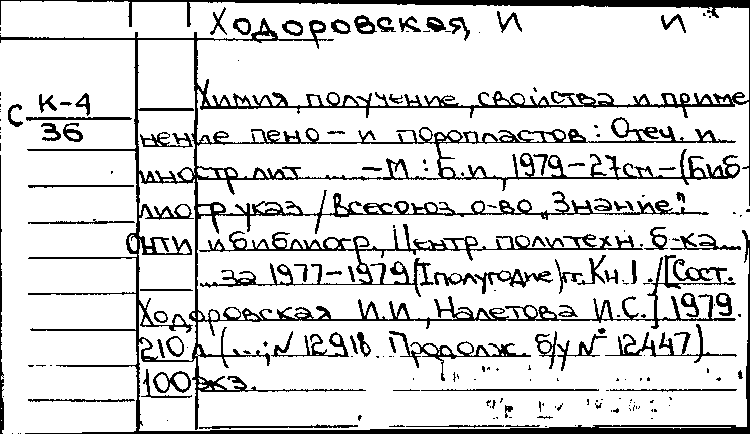 Ходоровская, И И
С К-4
36
Химия, получение, свойства и приме
нение пено- и поропластов: Отеч. и
иностр. лит ... -М : Б.и, 1979-27см-(Биб-
лиогр. указ / Всесоюз. о-во „Знание".
ОНТИ и библиогр., Центр. политехн. б-ка...)
...за 1977-1979(I полугодие)гг. Кн.1. /[Сост.
Ходоровская И.И., Налетова И.С.] 1979.
210 л (...; N 12918 Продолж. б/у N° 12447)
100 экз.